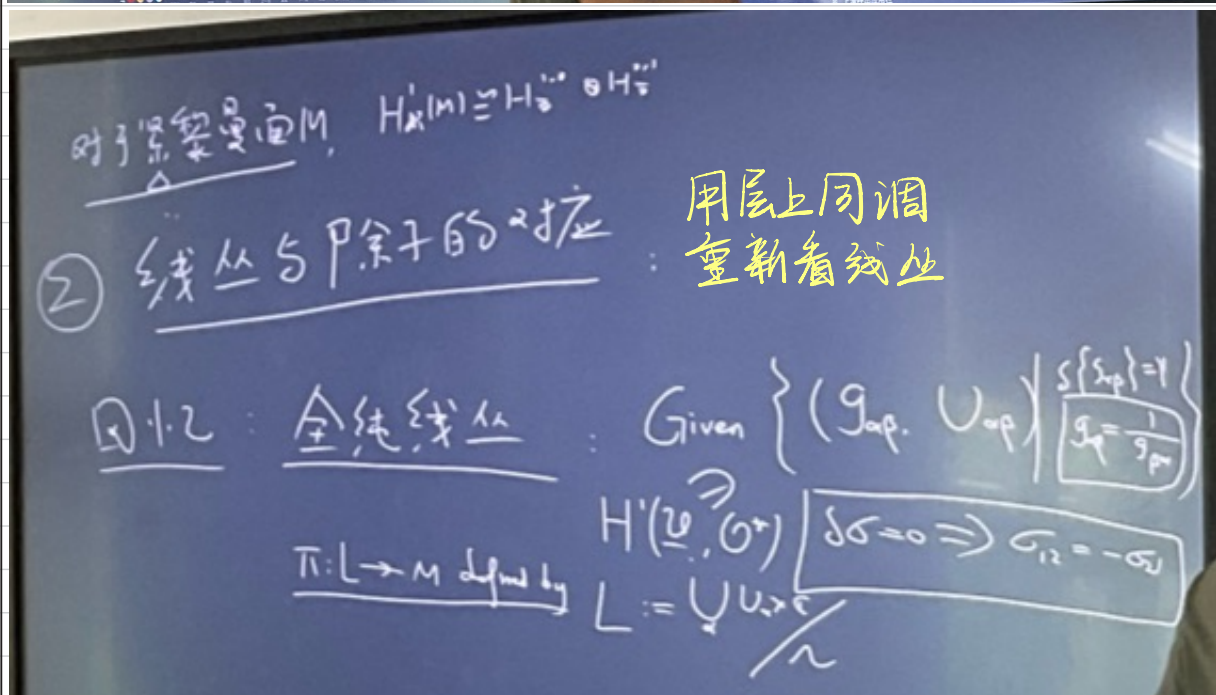 对于紧黎曼面M, H¹(M) ≅ H ⊕ H
② 线丛与除子的对应 :
用层上同调
重新看线丛
: 全纯线丛 : Given {(g_{αβ}, U_{αβ}) | δ{g_{αβ}}=1
g_{αβ} = 1/g_{βα}}
H¹(𝒰, O*) δσ=0 ⇒ σ₁₂ = -σ₂₁
π: L → M defined by L := ⋃_α U_α × C / ~